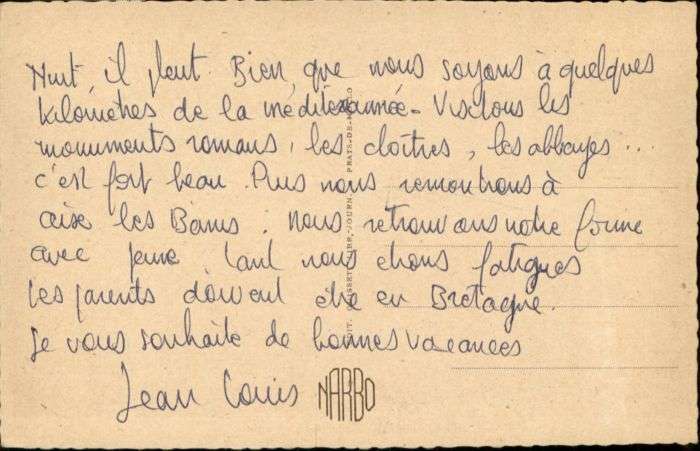 Nuit, il pleut. Bien que nous soyons à quelques
kilomètres de la méditerrannée - Visitons les
monuments romans, les cloîtres, les abbayes...
c'est fort beau. Puis nous remontrons à
aixe les Bains : nous retrouvons notre forme
avec peine tant nous étions fatigués
les parents doivent être en Bretagne.
Je vous souhaite de bonnes vacances
Jean Louis
NARBO